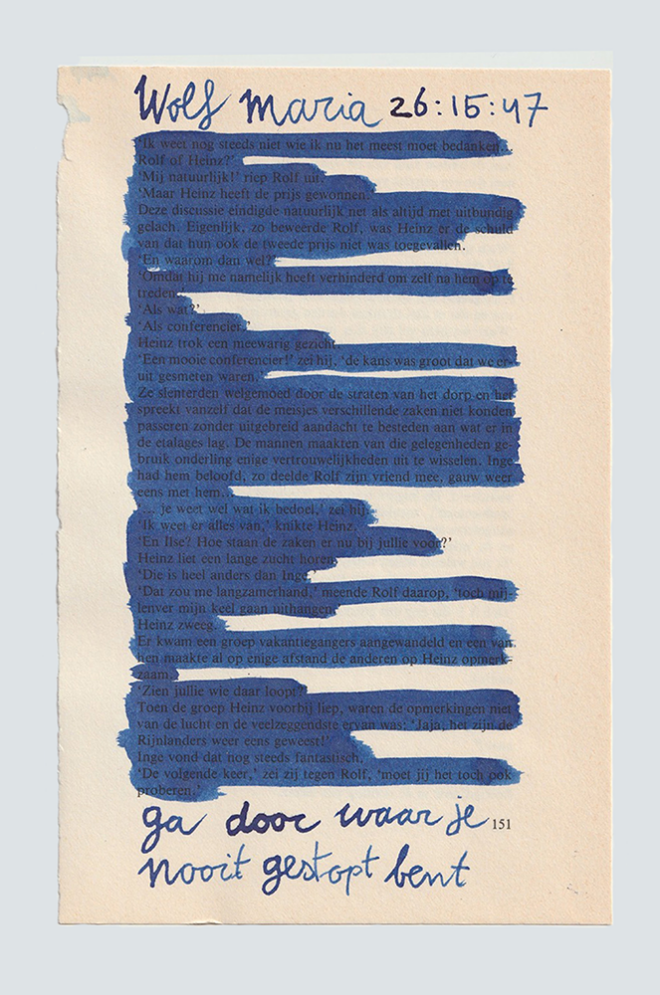 Wolf Maria 26:15:47
‘Ik weet nog steeds niet wie ik nu het meest moet bedanken...
Rolf of Heinz?’
‘Mij natuurlijk!’ riep Rolf uit.
‘Maar Heinz heeft de prijs gewonnen.’
Deze discussie eindigde natuurlijk net als altijd met uitbundig
gelach. Eigenlijk, zo beweerde Rolf, was Heinz er de schuld
van dat hun ook de tweede prijs niet was toegevallen.
‘En waarom dan wel?’
‘Omdat hij me namelijk heeft verhinderd om zelf na hem op te
treden.’
‘Als wat?’
‘Als conferencier.’
Heinz trok een meewarig gezicht.
‘Een mooie conferencier!’ zei hij, ‘de kans was groot dat we er-
uit gesmeten waren.’
Ze slenterden welgemoed door de straten van het dorp en het
spreekt vanzelf dat de meisjes verschillende zaken niet konden
passeren zonder uitgebreid aandacht te besteden aan wat er in
de etalages lag. De mannen maakten van die gelegenheden ge-
bruik onderling enige vertrouwelijkheden uit te wisselen. Inge
had hem beloofd, zo deelde Rolf zijn vriend mee, gauw weer
eens met hem...
‘... je weet wel wat ik bedoel,’ zei hij.
‘Ik weet er alles van,’ knikte Heinz.
‘En Ilse? Hoe staan de zaken er nu bij jullie voor?’
Heinz liet een lange zucht horen.
‘Die is heel anders dan Inge.’
‘Dat zou me langzamerhand,’ meende Rolf daarop, ‘toch mij-
lenver mijn keel gaan uithangen.’
Heinz zweeg.
Er kwam een groep vakantiegangers aangewandeld en een van
hen maakte al op enige afstand de anderen op Heinz opmerk-
zaam.
‘Zien jullie wie daar loopt?’
Toen de groep Heinz voorbij liep, waren de opmerkingen niet
van de lucht en de veelzeggendste ervan was: ‘Jaja, het zijn de
Rijnlanders weer eens geweest!’
Inge vond dat nog steeds fantastisch.
‘De volgende keer,’ zei zij tegen Rolf, ‘moet jij het toch ook
proberen.’
151
ga door waar je
nooit gestopt bent